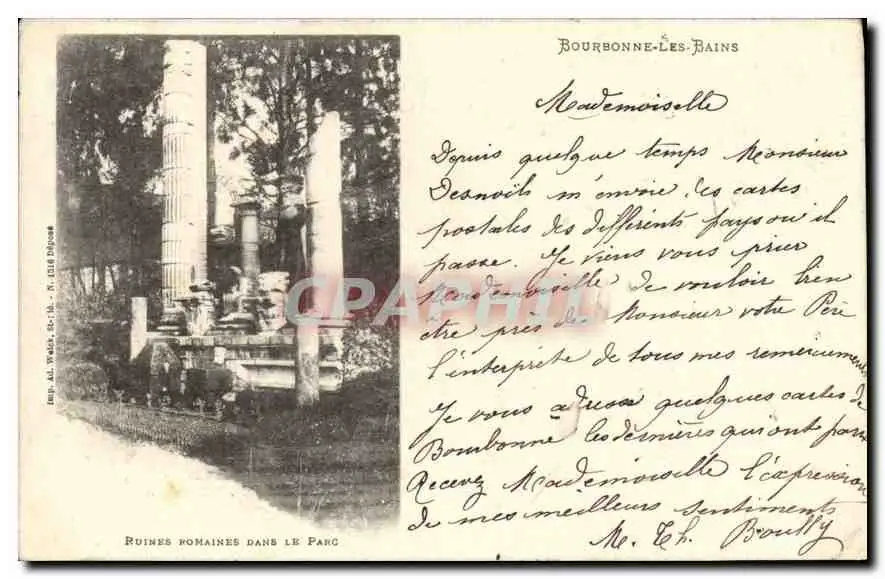 BOURBONNE-LES-BAINS
Mademoiselle
Depuis quelque temps Monsieur
Desnoëls m'envoie les cartes
postales des différents pays ou il
passe. Je viens vous prier
Mademoiselle de vouloir bien
être près de Monsieur votre Père
l'interprète de tous mes remerciements
Je vous adresse quelques cartes de
Bourbonne les dernières qui ont paru
Recevez Mademoiselle l'expression
de mes meilleurs sentiments
M. Th. Boully
CPARAMA
Imp. Ad. Weick, St-Dié. - N. 1516 Déposé
RUINES ROMAINES DANS LE PARC